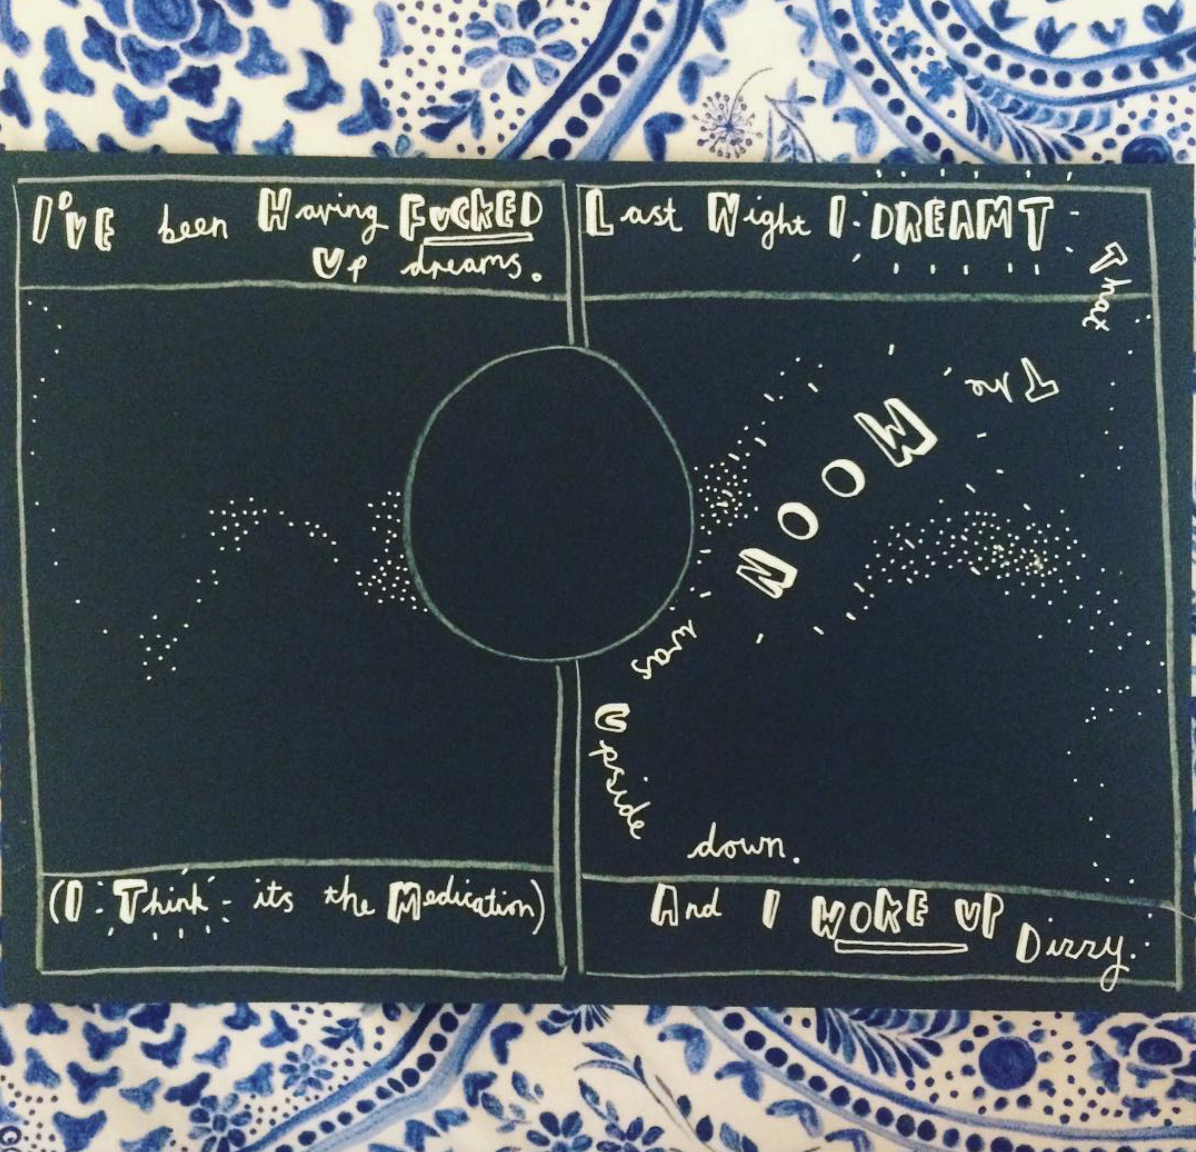 I've been Having FUCKED
Up dreams.
(I Think its the Medication)
Last Night I DREAMT
That
The
MOON
was
Upside
down.
And I WOKE UP
Dizzy.